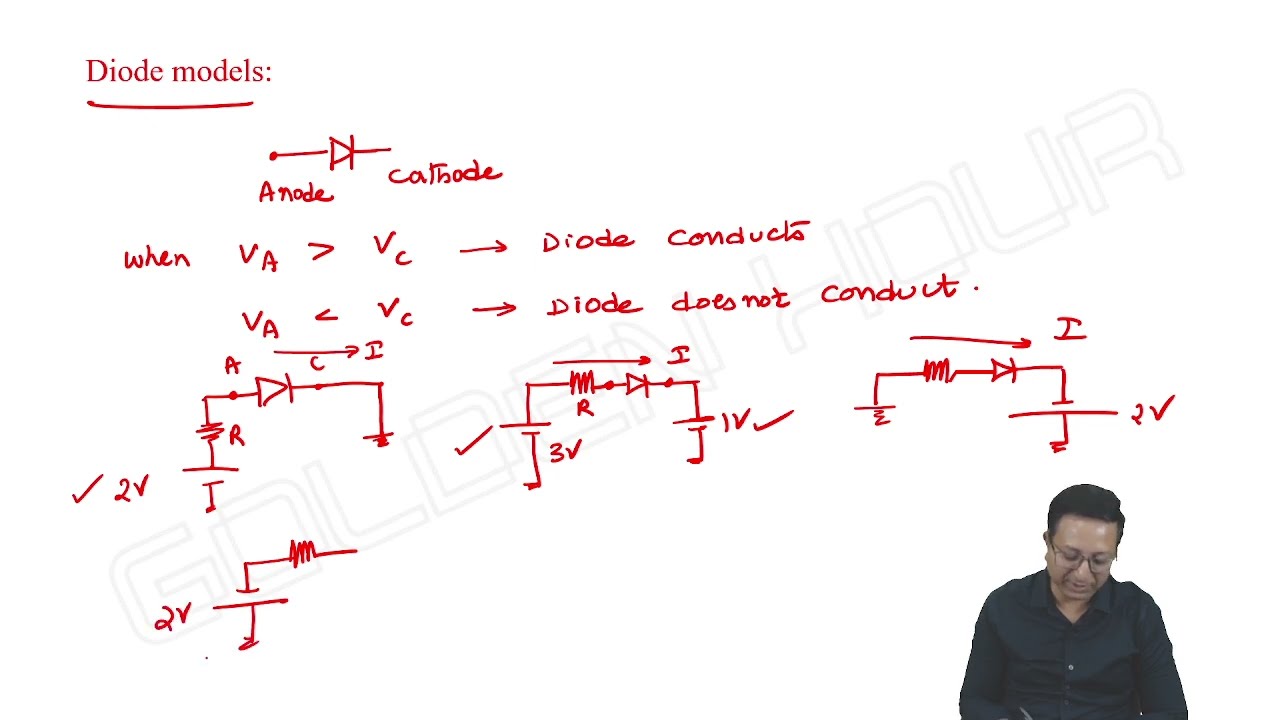 Diode models:
Anode
Cathode
when VA > VC → Diode conducts
VA < VC → Diode does not conduct.
A
C
I
R
✓ 2V
I
R
✓ 3V
1V ✓
I
2V
2V
GOLDEN HOUR